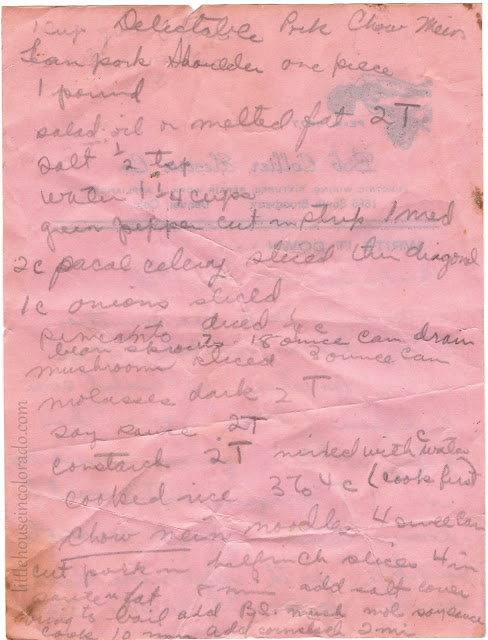 1 cup Delectable Pork Chow Mein
Lean pork shoulder one piece
1 pound
salad oil or melted fat 2 T
salt 1/2 tsp
water 1 1/4 cups
green pepper cut in strip 1 med
2c pacal celery sliced thin diagonal
1c onions sliced
pimianto diced 1/4 c
bean sprouts 18 ounce can drain
mushroom sliced 3 ounce can
molasses dark 2 T
soy sauce 2T
constarch 2T mixed with c water
cooked rice 3 to 4 c (cook first)
Chow mein noodles 4 ounce can
cut pork in half inch slices 4 in
saute in fat 8 min add salt cover
bring to boil add mols soy sauce
cook 10 min add cornstch 2 mi
littlehouseincolorado.com